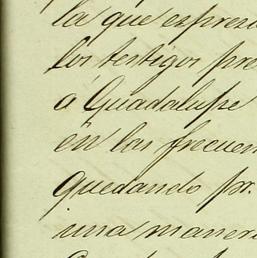 la que expres
los testigos pre
á Guadalupe
en las frecuen
quedando pr.
una maner